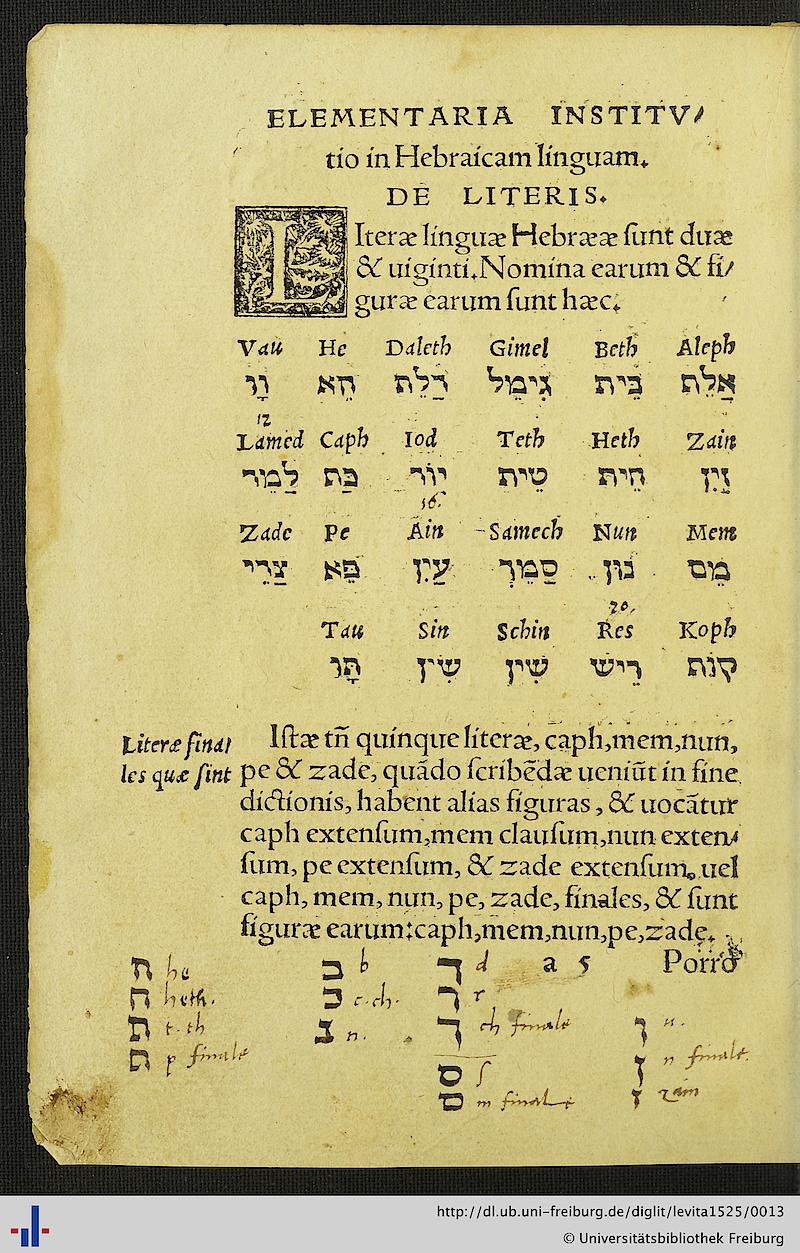 ELEMENTARIA INSTITV/
tio in Hebraicam linguam.
DE LITERIS.
LIteræ linguæ Hebrææ sunt duæ
& uiginti. Nomina earum & fi/
guræ earum sunt hæc.
Vau He Daleth Gimel Beth Aleph
12
Lamed Caph Iod Teth Heth Zain
16.
Zade Pe Ain Samech Nun Mem
20.
Tau Sin Schin Res Koph
Literæ fina/
les quæ sint
Istæ tñ quinque literæ, caph,mem,nun,
pe & zade, quãdo scribẽdæ ueniũt in fine
dictionis, habent alias figuras, & uocãtur
caph extensum,mem clausum,nun exten/
sum, pe extensum, & zade extensum. uel
caph, mem, nun, pe, zade, finales, & sunt
figuræ earum:caph,mem,nun,pe,zade.
a 5 Porrò
ה he
ח heth.
ת t. th
ב b
כ c. ch.
נ n.
ד d
ר r
ך ch finale
ס s
ם m finale
ו u.
ן n finale.
ז zain
http://dl.ub.uni-freiburg.de/diglit/levita1525/0013
© Universitätsbibliothek Freiburg